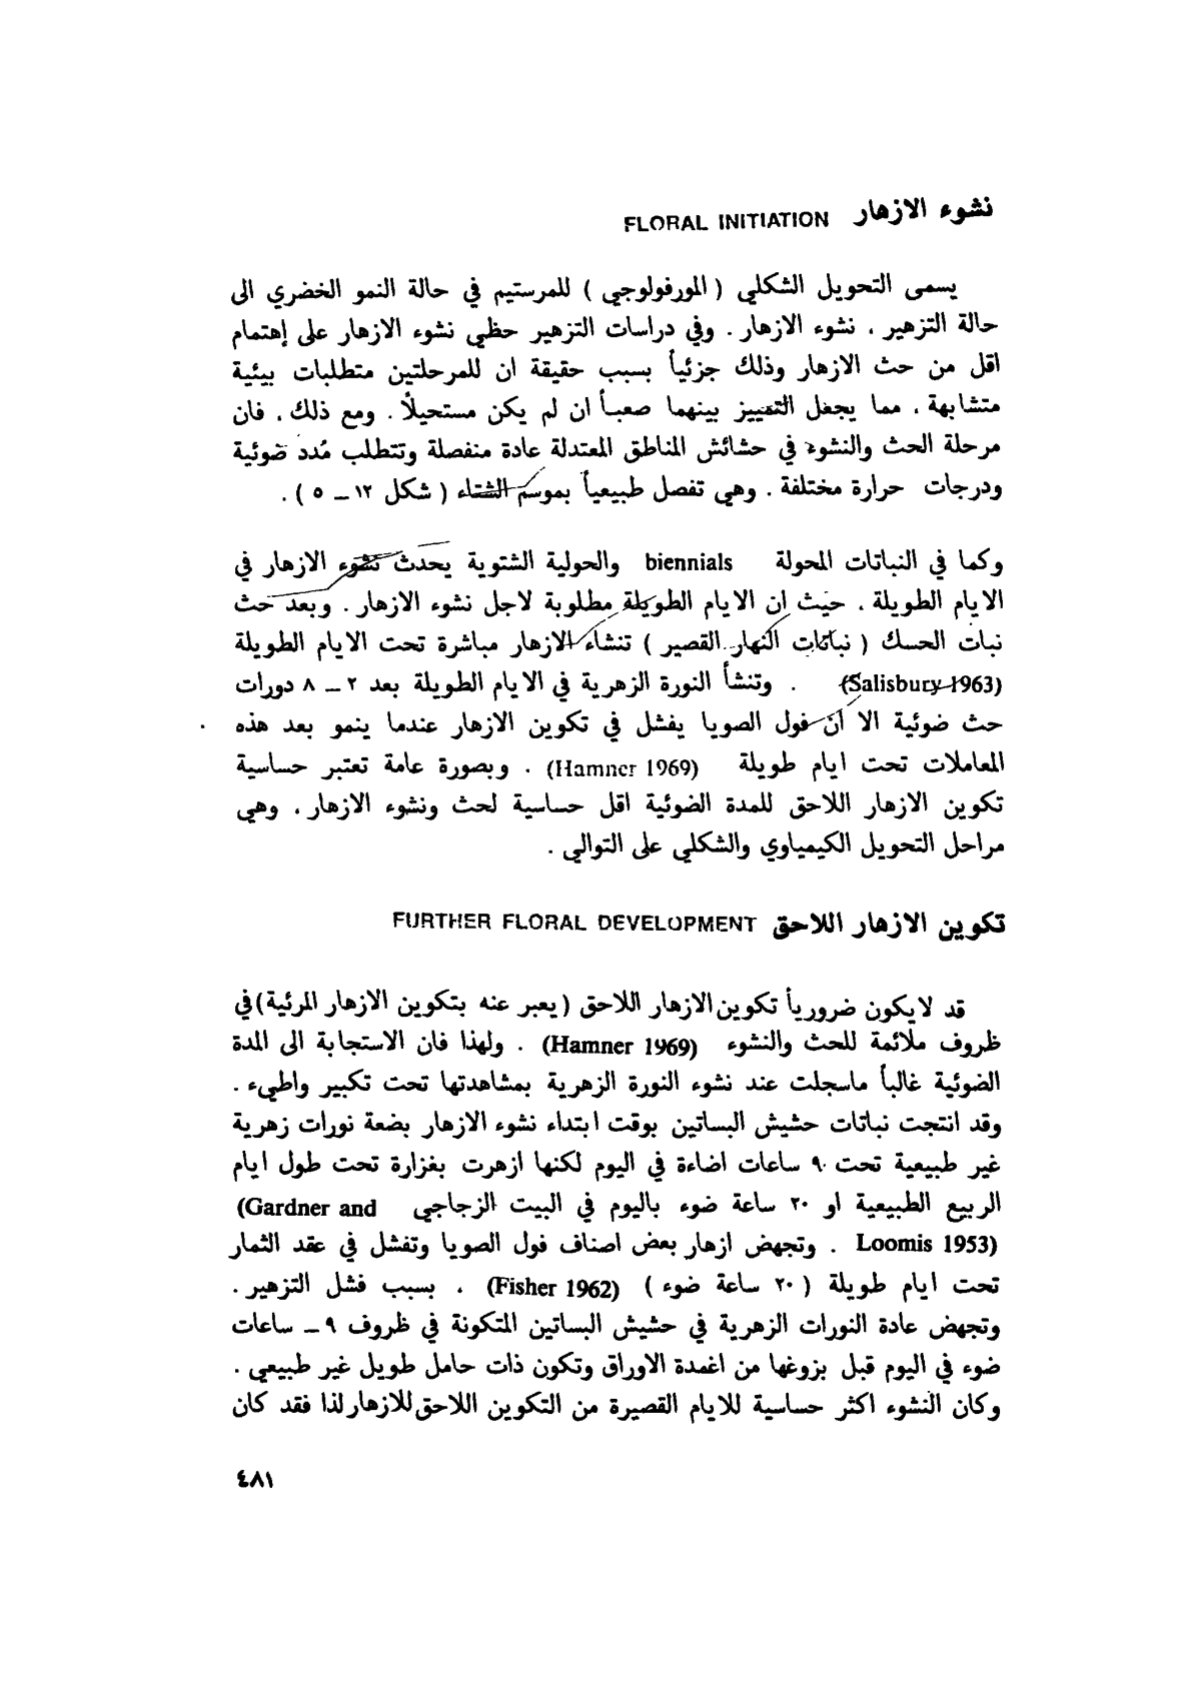 نشوء الازهار FLORAL INITIATION
يسمى التحويل الشكلي ( المورفولوجي ) للمرستيم في حالة النمو الخضري الى
حالة التزهير ، نشوء الازهار . وفي دراسات التزهير حظي نشوء الازهار على إهتمام
اقل من حث الازهار وذلك جزئياً بسبب حقيقة ان للمرحلتين متطلبات بيئية
متشابهة ، مما يجعل التمييز بينهما صعباً ان لم يكن مستحيلاً . ومع ذلك ، فان
مرحلة الحث والنشوء في حشائش المناطق المعتدلة عادة منفصلة وتتطلب مُدد ضوئية
ودرجات حرارة مختلفة . وهي تفصل طبيعياً بموسم الشتاء ( شكل ١٢ ــ ٥ ) .
وكما في النباتات المحولة biennials والحولية الشتوية يحدث نشوء الازهار في
الايام الطويلة ، حيث ان الايام الطويلة مطلوبة لاجل نشوء الازهار . وبعد حث
نبات الحسك ( نباتات النهار القصير ) تنشاء الازهار مباشرة تحت الايام الطويلة
(Salisbury 1963) . وتنشأ النورة الزهرية في الايام الطويلة بعد ٢ ــ ٨ دورات
حث ضوئية الا ان فول الصويا يفشل في تكوين الازهار عندما ينمو بعد هذه
المعاملات تحت ايام طويلة (Hamner 1969) . وبصورة عامة تعتبر حساسية
تكوين الازهار اللاحق للمدة الضوئية اقل حساسية لحث ونشوء الازهار ، وهي
مراحل التحويل الكيمياوي والشكلي على التوالي .
تكوين الازهار اللاحق FURTHER FLORAL DEVELOPMENT
قد لايكون ضرورياً تكوين الازهار اللاحق ( يعبر عنه بتكوين الازهار المرئية ) في
ظروف ملائمة للحث والنشوء (Hamner 1969) . ولهذا فان الاستجابة الى المدة
الضوئية غالباً ماسجلت عند نشوء النورة الزهرية بمشاهدتها تحت تكبير واطيء .
وقد انتجت نباتات حشيش البساتين بوقت ابتداء نشوء الازهار بضعة نورات زهرية
غير طبيعية تحت ٩ ساعات اضاءة في اليوم لكنها ازهرت بغزارة تحت طول ايام
الربيع الطبيعية او ٢٠ ساعة ضوء باليوم في البيت الزجاجي (Gardner and
Loomis 1953) . وتجهض ازهار بعض اصناف فول الصويا وتفشل في عقد الثمار
تحت ايام طويلة ( ٢٠ ساعة ضوء ) (Fisher 1962) ، بسبب فشل التزهير .
وتجهض عادة النورات الزهرية في حشيش البساتين المتكونة في ظروف ٩ ــ ساعات
ضوء في اليوم قبل بزوغها من اغمدة الاوراق وتكون ذات حامل طويل غير طبيعي .
وكان النشوء اكثر حساسية للايام القصيرة من التكوين اللاحق للازهار لذا فقد كان
٤٨١